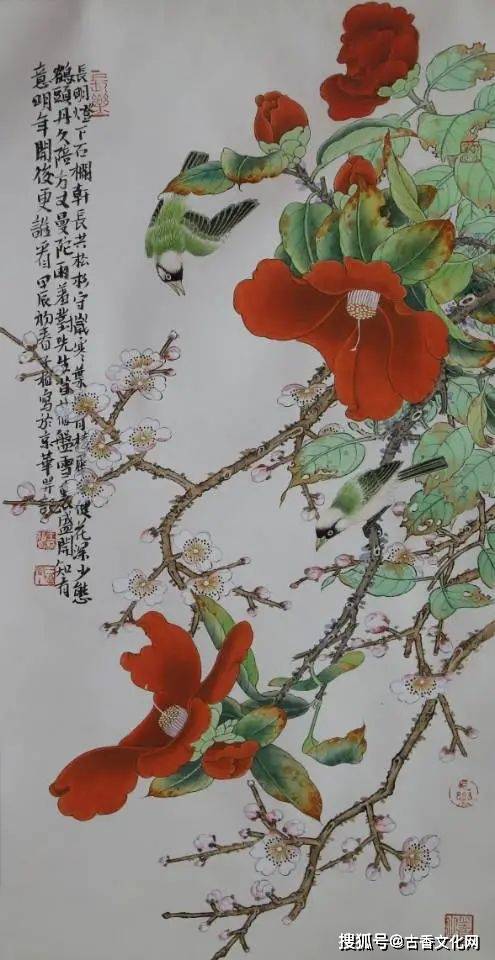 長明燈下石欄軒長共松杉守歲寒葉有棱健花深少態
鶴頭丹久陪方丈曼陀雨羞對先生苜蓿盤雪裏盛開知有
意明年開後更誰看甲辰初春寫於京華
搜狐号@古香文化网